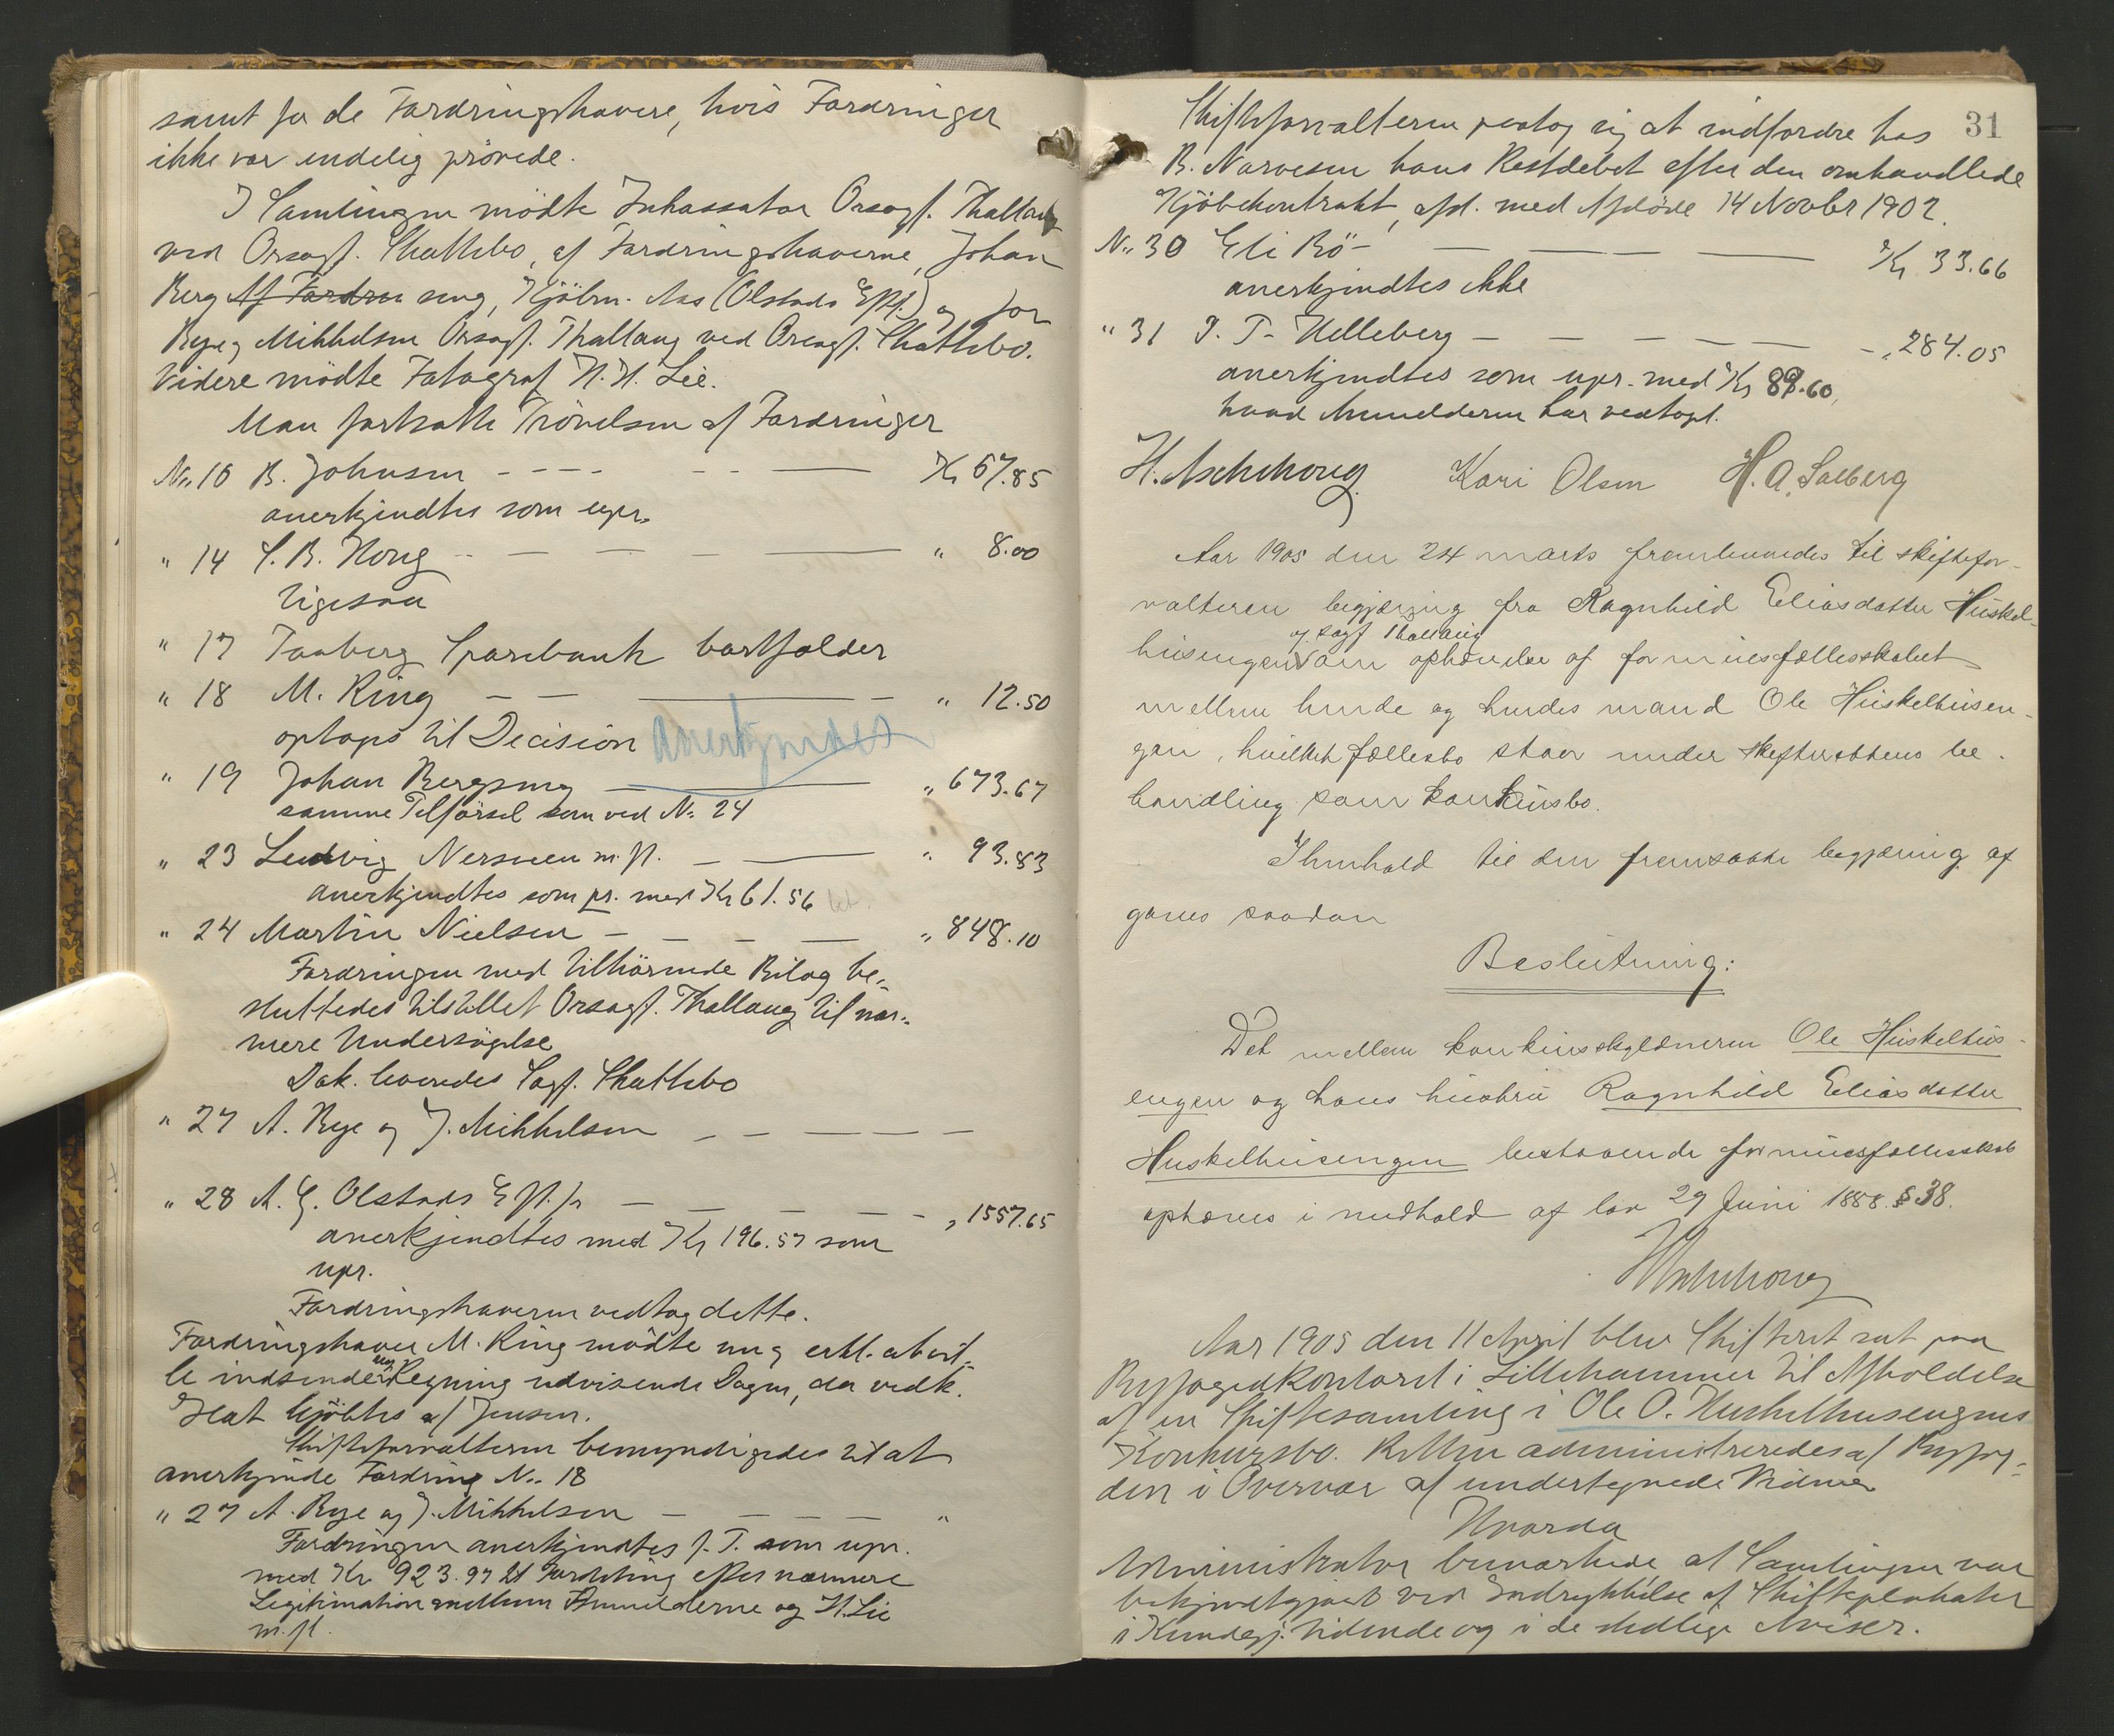 samt for de Fordringshavere, hvis Fordringer
ikke var endelig prövede.
I Samlingen mödte Inkassator Orsagf. Thallaug
ved Orsagf. Skattebo, af Fordringshaverne, Johan
Berg Af Fordrin seng, Kjöbm. Aas (Olstads Eftf.) og for
Rye og Mikkelsen Orsagf. Thallaug ved Orsagf. Skattebo.
Videre mödte Fotograf H. H. Lie.
Man fortsatte Prövelsen af Fordringer
No. 10 B. Johnsen - - - - - - — Kr 67.85
anerkjendtes som upr.
" 14 S. B. Houg - - — — — " 8.00
ligesaa
" 17 Faaberg Sparebank bortfalder
" 18 M. Ring — — — — " 12.50
optages til Decision anerkjendes
" 19 Johan Bergseng — " 673.67
samme Tilförsel som ved No. 24
" 23 Ludvig Nersveen m. fl. — — " 93.83
anerkjendtes som pr. med Kr 61.56
" 24 Martin Nielsen — — — — " 848.10
Fordringen med tilhörende Bilag be-
sluttedes tilstillet Orsagf. Thallaug til nær-
mere Undersögelse
Dok. leveredes Sagf. Skattebo
" 27 A. Rye og J. Mikkelsen — — — — —
" 28 A. G. Olstads Eftf. — — — — — " 1557.65
anerkjendtes med Kr 196.57 som
upr.
Fordringshaveren vedtog dette.
Fordringshaver M. Ring mödte nu og erkl. at vil-
le indsende ny Regning udvisende Dagen, da vedk.
Hat kjöbtes af Jensen.
Skifteforvalteren bemyndigedes til at
anerkjende Fordring No. 18
" 27 A. Rye og J. Mikkelsen — — — — "
Fordringen anerkjendtes p. T. som upr.
med Kr 923.97 til Fordeling efter nærmere
Legitimation mellem Anmelderne og H. Lie
m. fl.
31
Skifteforvalteren paatog sig at indfordre hos
B. Narvesen hans Restdebet efter den omhandlede
Kjöbekontrakt, afsl. med Aflöse 14 Novbr 1902.
No. 30 Eli Bö — — — — Kr 33.66
anerkjendtes ikke
" 31 J. T. Helleberg — — — — — - " 284.05
anerkjendtes som upr. med Kr 89.60,
hvad Anmelderen har vedtaget.
H. Aschehoug Kari Olsen H. A. Solberg
Aar 1905 den 24 marts fremkunndes til skiftefor-
valteren begjæring fra Ragnhild Eliasdatter Huskel-
og sagf Thallaug
husengen om ophævelse af formuesfællesskabet
mellem hende og hendes mand Ole Huskelhusen-
gen, hvilket fællesbo staar under skifterettens be-
handling som konkursbo.
I henhold til den fremsatte begjæring af-
gaves saadan
Beslutning:
Det mellem konkursskyldneren Ole Huskelhus-
engen og hans hustru Ragnhild Eliasdatter
Huskelhusengen bestaaende formuesfællesskab
ophæves i medhold af lov 29 Juni 1888 § 38.
H Aschehoug
Aar 1905 den 11 April blev Skifteret sat paa
Byfogedkontoret i Lillehammer til Afholdelse
af en Skiftesamling i Ole O. Huskelhusengens
Konkursbo. Retten administreredes af Byfog-
den i Overvær af undertegnede Vidner
Hvorda
Administrator bemærkede, at Samlingen var
bekjendtgjort ved Indrykkelse af Skifteplakater
i Kundgj. tidende og i de stedlige Aviser.